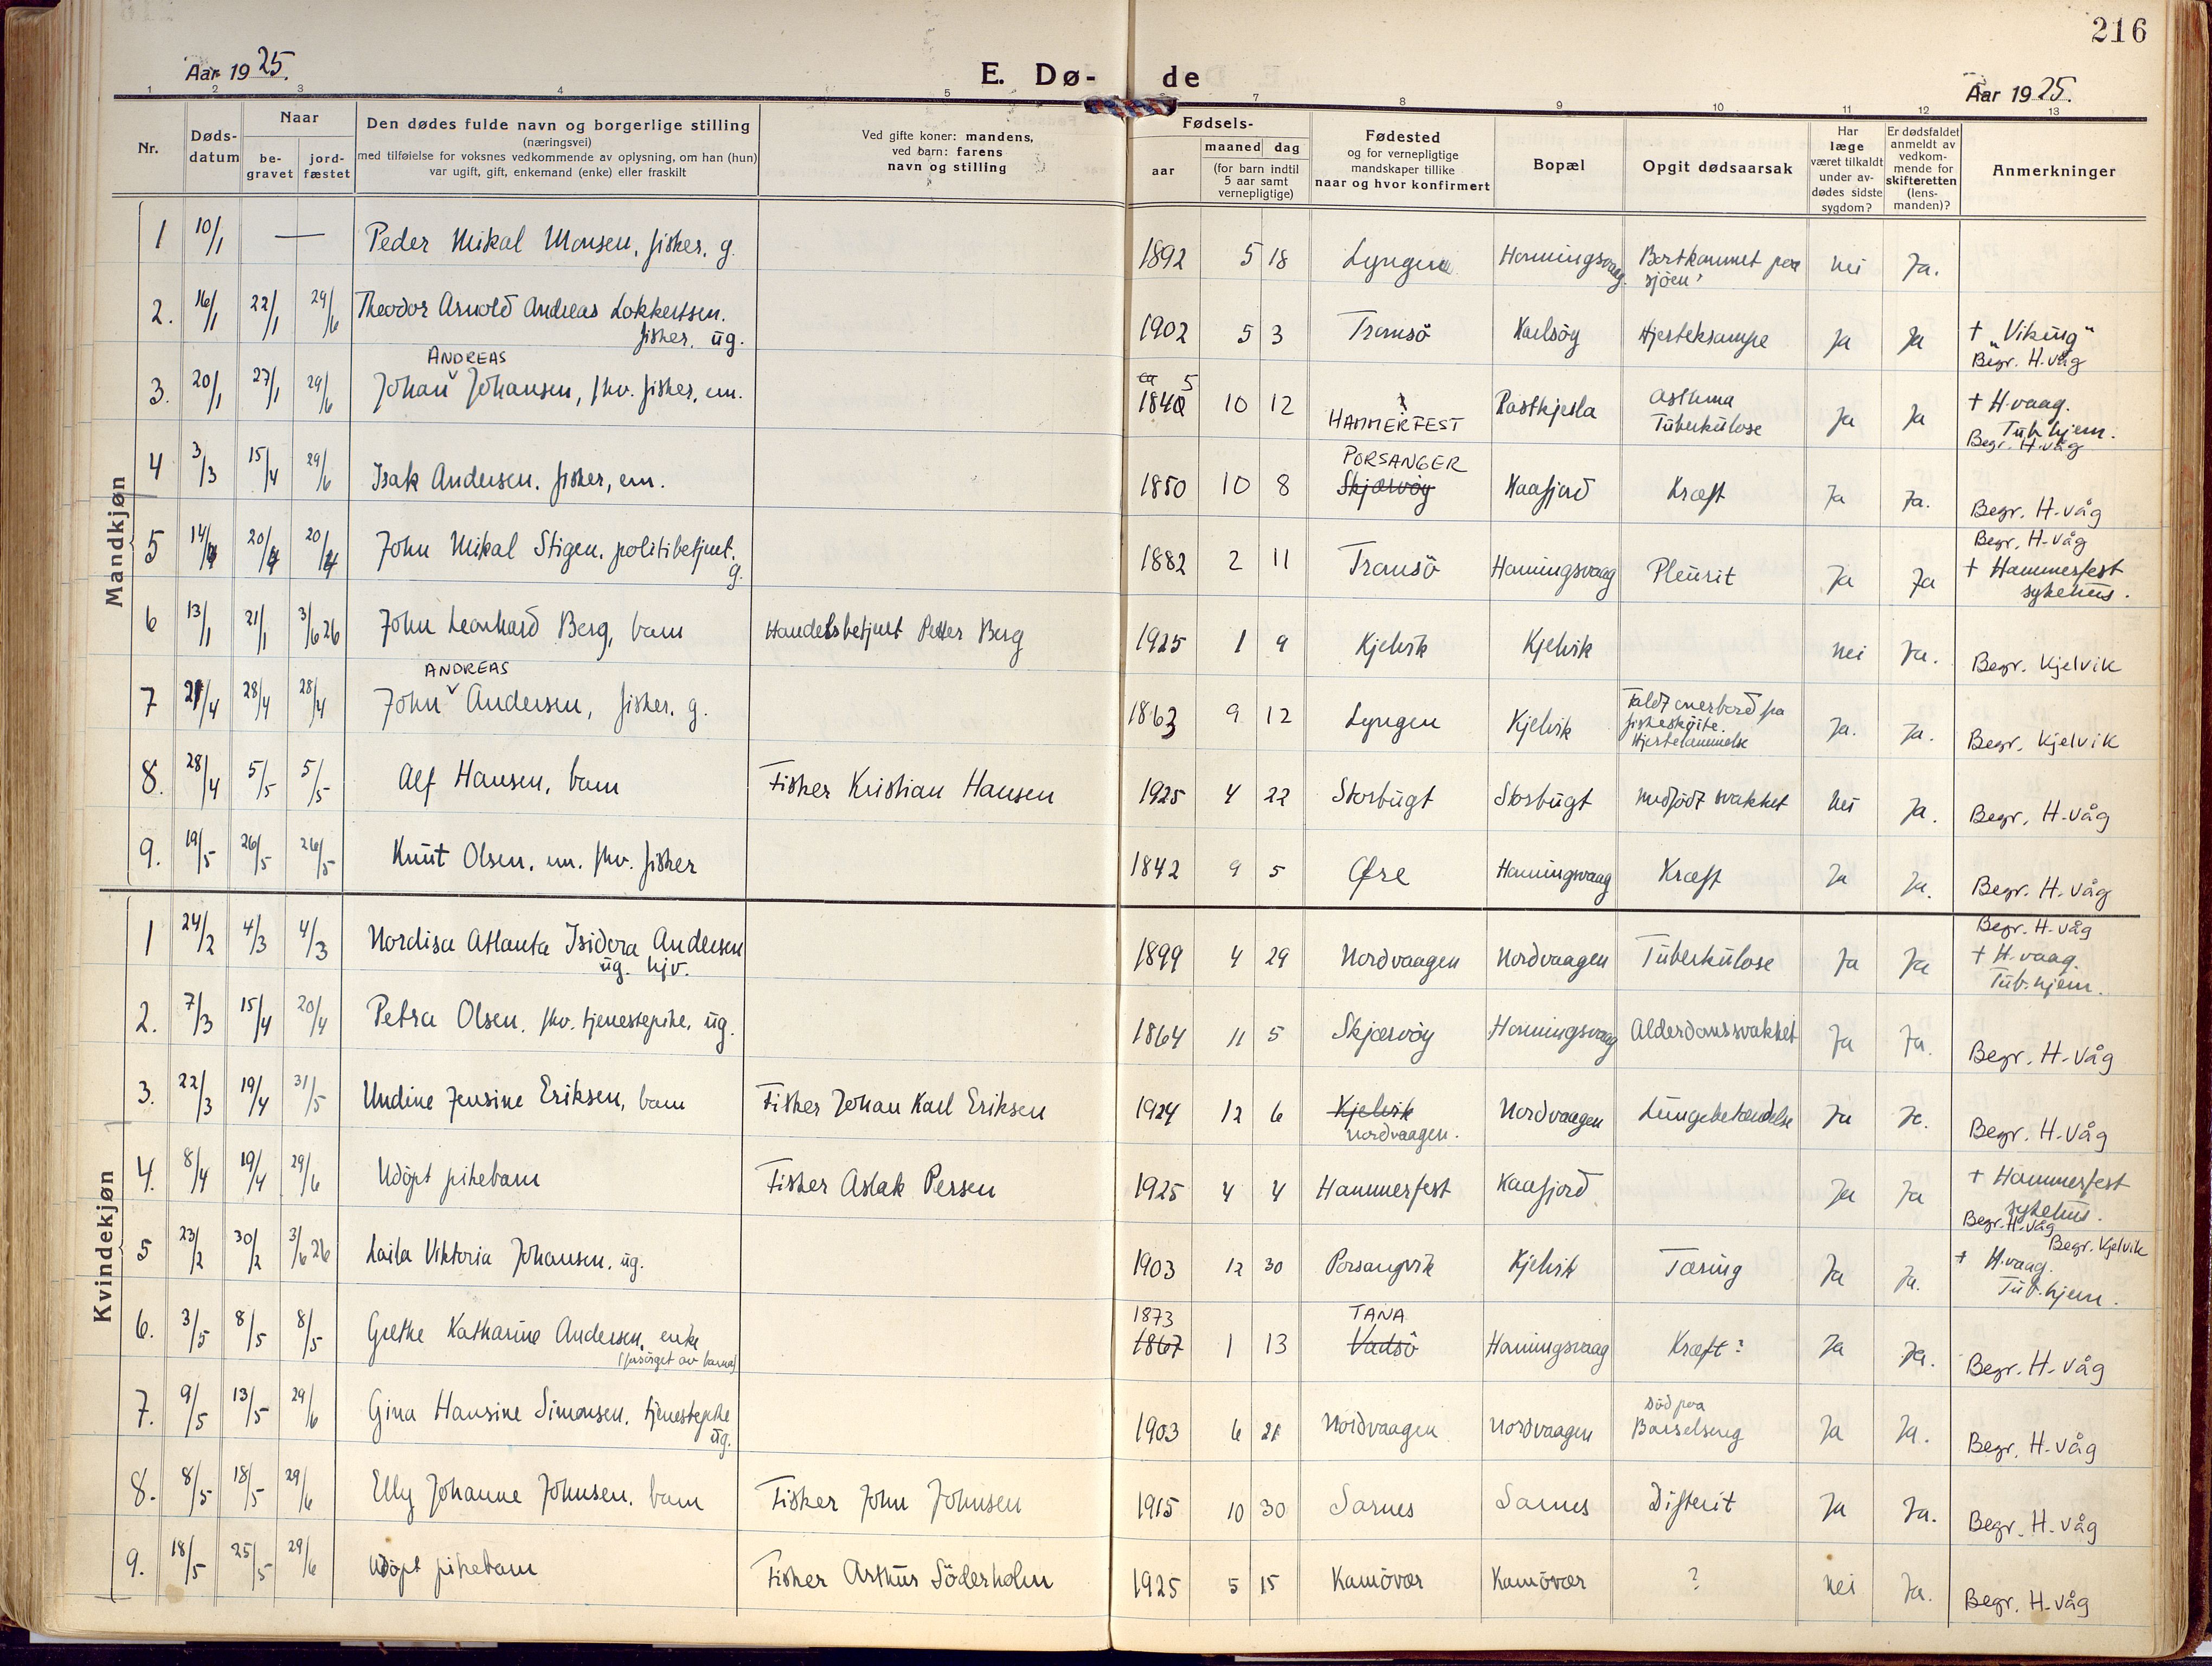 216
Aar 1925.
E. Dø- de
Aar 1925.
1 2 3 4 5 7 8 9 10 11 12 13
Nr.
Døds-
datum
Naar
be-
gravet
jord-
fæstet
Den dødes fulde navn og borgerlige stilling
(næringsvei)
med tilføielse for voksnes vedkommende av oplysning, om han (hun)
var ugift, gift, enkemand (enke) eller fraskilt
Ved gifte koner: mandens,
ved barn: farens
navn og stilling
Fødsels-
aar
maaned dag
(for barn indtil
5 aar samt
vernepligtige)
Fødested
og for vernepligtige
mandskaper tillike
naar og hvor konfirmert
Bopæl
Opgit dødsaarsak
Har
læge
været tilkaldt
under av-
dødes sidste
sygdom?
Er dødsfaldet
anmeldt av
vedkom-
mende for
skifteretten
(lens-
manden)?
Anmerkninger
Mandkjøn
1 10/1 — Peder Mikal Monsen, fisker, g. 1892 5 18 Lyngen Honningsvaag. Bortkommet paa sjöen nei Ja.
2. 16/1 22/1 29/6 Theodor Arnold Andreas Lokkertsen. fisker, ug. 1902 5 3 Tromsö Karlsöy Hjertekrampe Ja Ja + "Viking" Begr. H.våg
3. 20/1 27/1 29/6 Johan ANDREAS Johansen, fhv. fisker, em. ca 1840 5 10 12 HAMMERFEST Rastkjerla Asthma Tuberkulose Ja Ja + H.vaag. Tub.hjem. Begr. H.våg
4 3/3 15/4 29/6 Isak Andersen, fisker, em. 1850 10 8 PORSANGER Skjærvöy Kaafjord Kræft Ja Ja. Begr. H-våg
5 14/4 20/4 20/4 John Mikal Stigen, politibetjent. g. 1882 2 11 Tromsö Honningsvaag Pleurit Ja Ja Begr. H-våg + Hammerfest sykehus.
6 13/1 21/1 3/6 26 John Leonhard Berg, barn Handelsbetjent Peder Berg 1925 1 9 Kjelvik Kjelvik nei Ja. Begr. Kjelvik
7 21/4 28/4 28/4 John ANDREAS Andersen, fisker, g. 1863 9 12 Lyngen Kjelvik Faldt overbord fra fiskesköite. Hjertelammelse Ja. Ja. Begr. Kjelvik
8. 28/4 5/5 5/5 Alf Hansen, barn Fisker Kristian Hansen 1925 4 22 Storbugt Storbugt medfödt svakhet Nei Ja. Begr. H-våg
9. 19/5 26/5 26/5 Knut Olsen, em. fhv. fisker 1842 9 5 Øre Honningsvaag Kræft Ja Ja. Begr. H-våg
Kvindekjøn
1 24/2 4/3 4/3 Nordisa Atlanta Isidora Andersen ug. hjv. 1899 4 29 Nordvaagen Nordvaagen Tuberkulose Ja Ja Begr. H-våg + H.vaag. Tub.hjem.
2. 7/3 15/4 20/4 Petra Olsen, fhv. tjenestepike, ug. 1864 11 5 Skjærvöy Honningsvaag Alderdomssvakhet Ja Ja. Begr. H-våg
3. 22/3 19/4 31/5 Undine Jensine Eriksen, barn Fisker Johan Karl Eriksen 1924 12 6 Kjelvik Nordvaagen. Nordvaagen Lungebetændelse Ja Ja. Begr. H-våg
4. 8/4 19/4 29/6 Udöpt pikebarn Fisker Aslak Persen 1925 4 4 Hammerfest Kaafjord Ja Ja + Hammerfest sykehus. Begr. H-våg
5 23/2 30/2 3/6 26 Laila Viktoria Johansen, ug. 1903 12 30 Porsangvik Kjelvik Tæring Ja Ja. Begr. Kjelvik + H.vaag. Tub.hjem.
6. 3/5 8/5 8/5 Grethe Katharine Andersen, enke (forsörget av barna) 1873 1867 1 13 TANA Vadsö Honningsvaag Kræft? Ja Ja. Begr. H-våg
7. 9/5 13/5 29/6 Gina Hansine Simonsen, tjenestepike ug. 1903 6 21 Nordvaagen Nordvaagen Död paa Barselseng Ja Ja. Begr. H-våg
8. 8/5 18/5 29/6 Elly Johanne Johnsen, barn Fisker John Johnsen 1915 10 30 Sarnes Sarnes Difterit Ja Ja. Begr. H-våg
9. 18/5 25/5 29/6 Udöpt pikebarn Fisker Arthur Söderholm 1925 5 15 Kamövær Kamövær ? nei Ja. Begr. H-våg